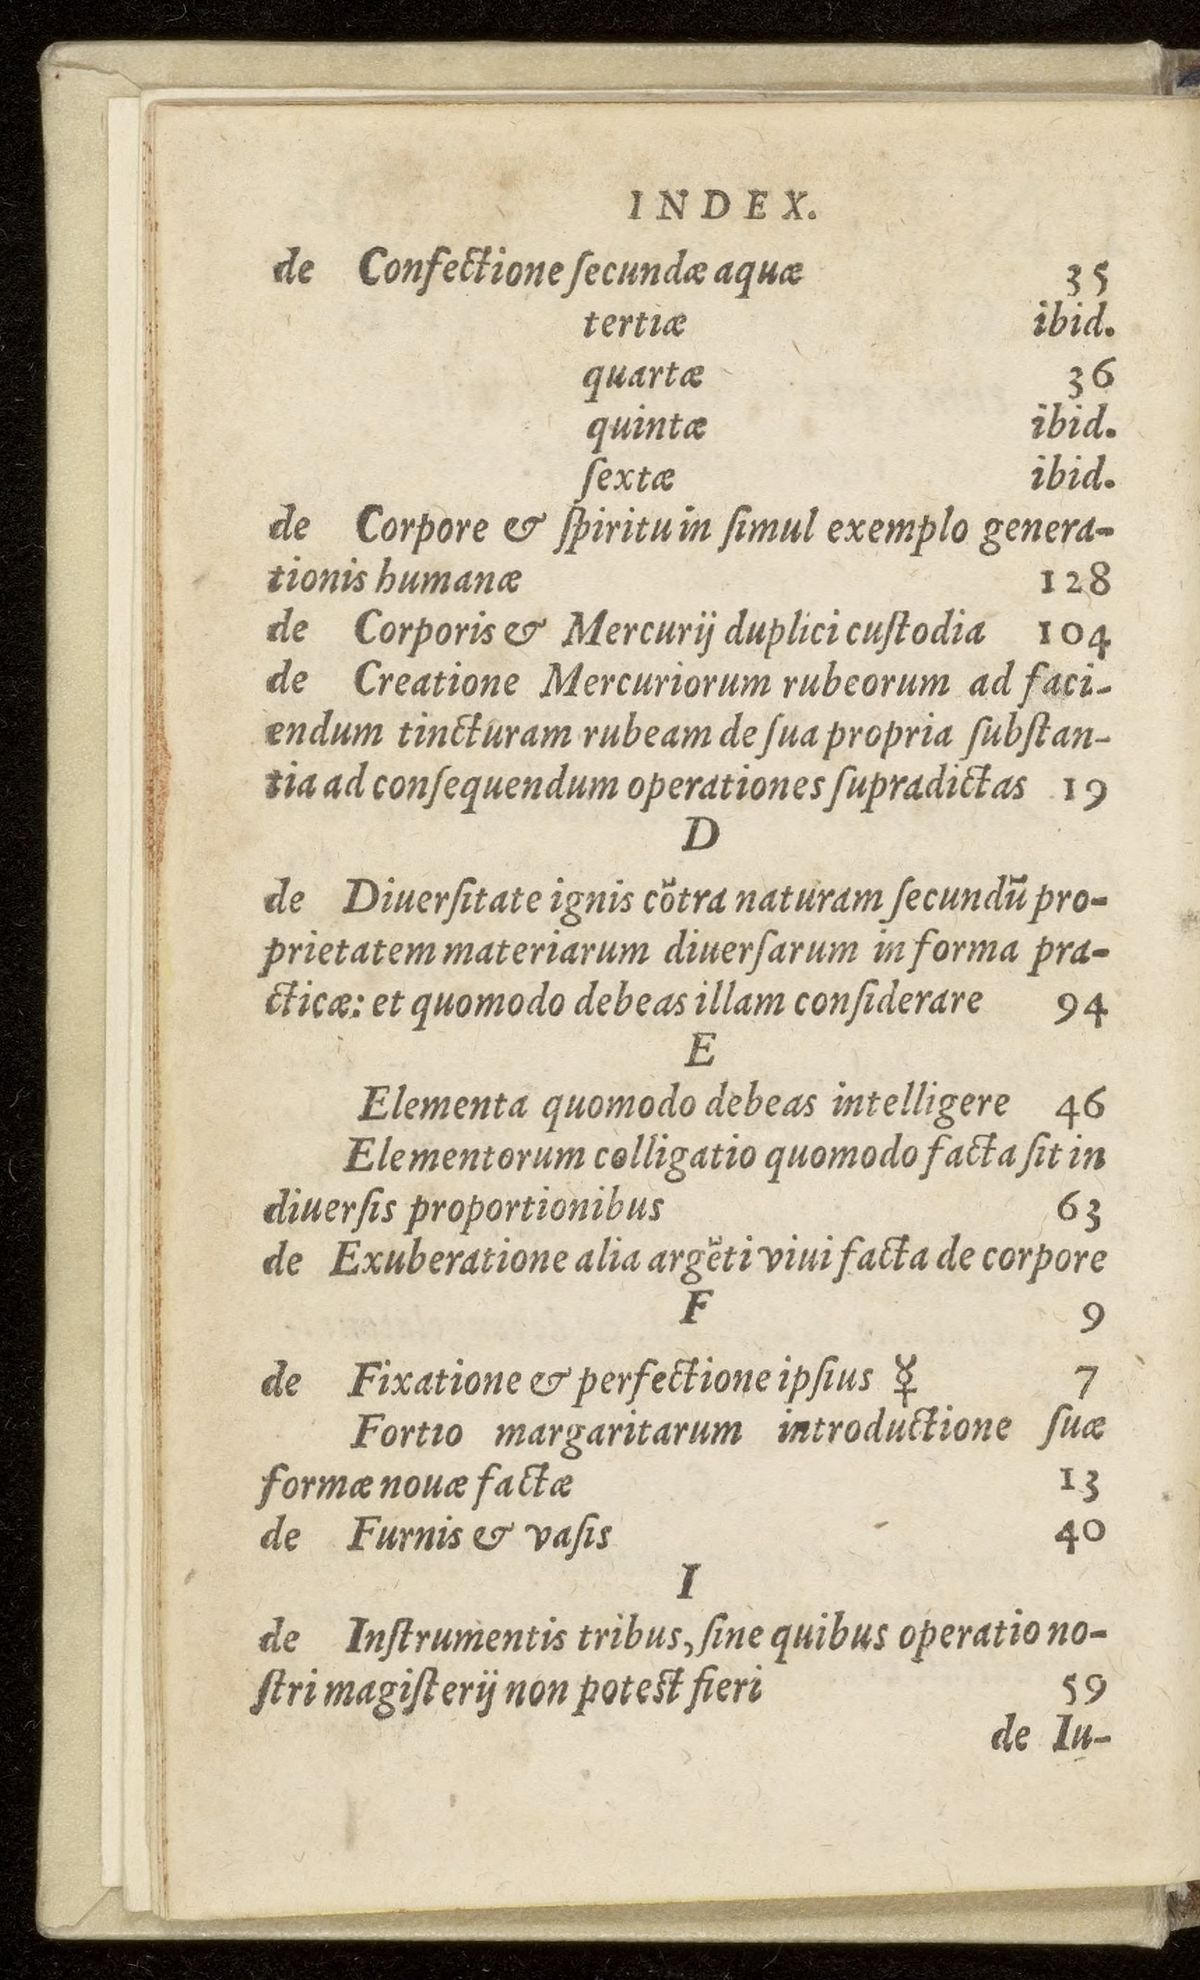 INDEX.
de Confectione ſecundæ aquæ 35
tertiæ ibid.
quartæ 36
quintæ ibid.
ſextæ ibid.
de Corpore & ſpiritu in ſimul exemplo genera-
tionis humanæ 128
de Corporis & Mercurij duplici cuſtodia 104
de Creatione Mercuriorum rubeorum ad faci-
endum tincturam rubeam de ſua propria ſubſtan-
tia ad conſequendum operationes ſupradictas 19
D
de Diuerſitate ignis cõtra naturam ſecundũ pro-
prietatem materiarum diuerſarum in forma pra-
cticæ: et quomodo debeas illam conſiderare 94
E
Elementa quomodo debeas intelligere 46
Elementorum colligatio quomodo facta ſit in
diuerſis proportionibus 63
de Exuberatione alia argẽti viui facta de corpore
F 9
de Fixatione & perfectione ipſius ☿ 7
Fortio margaritarum introductione ſuæ
formæ nouæ factæ 13
de Furnis & vaſis 40
I
de Inſtrumentis tribus, ſine quibus operatio no-
ſtri magiſterij non poteſt fieri 59
de Iu-